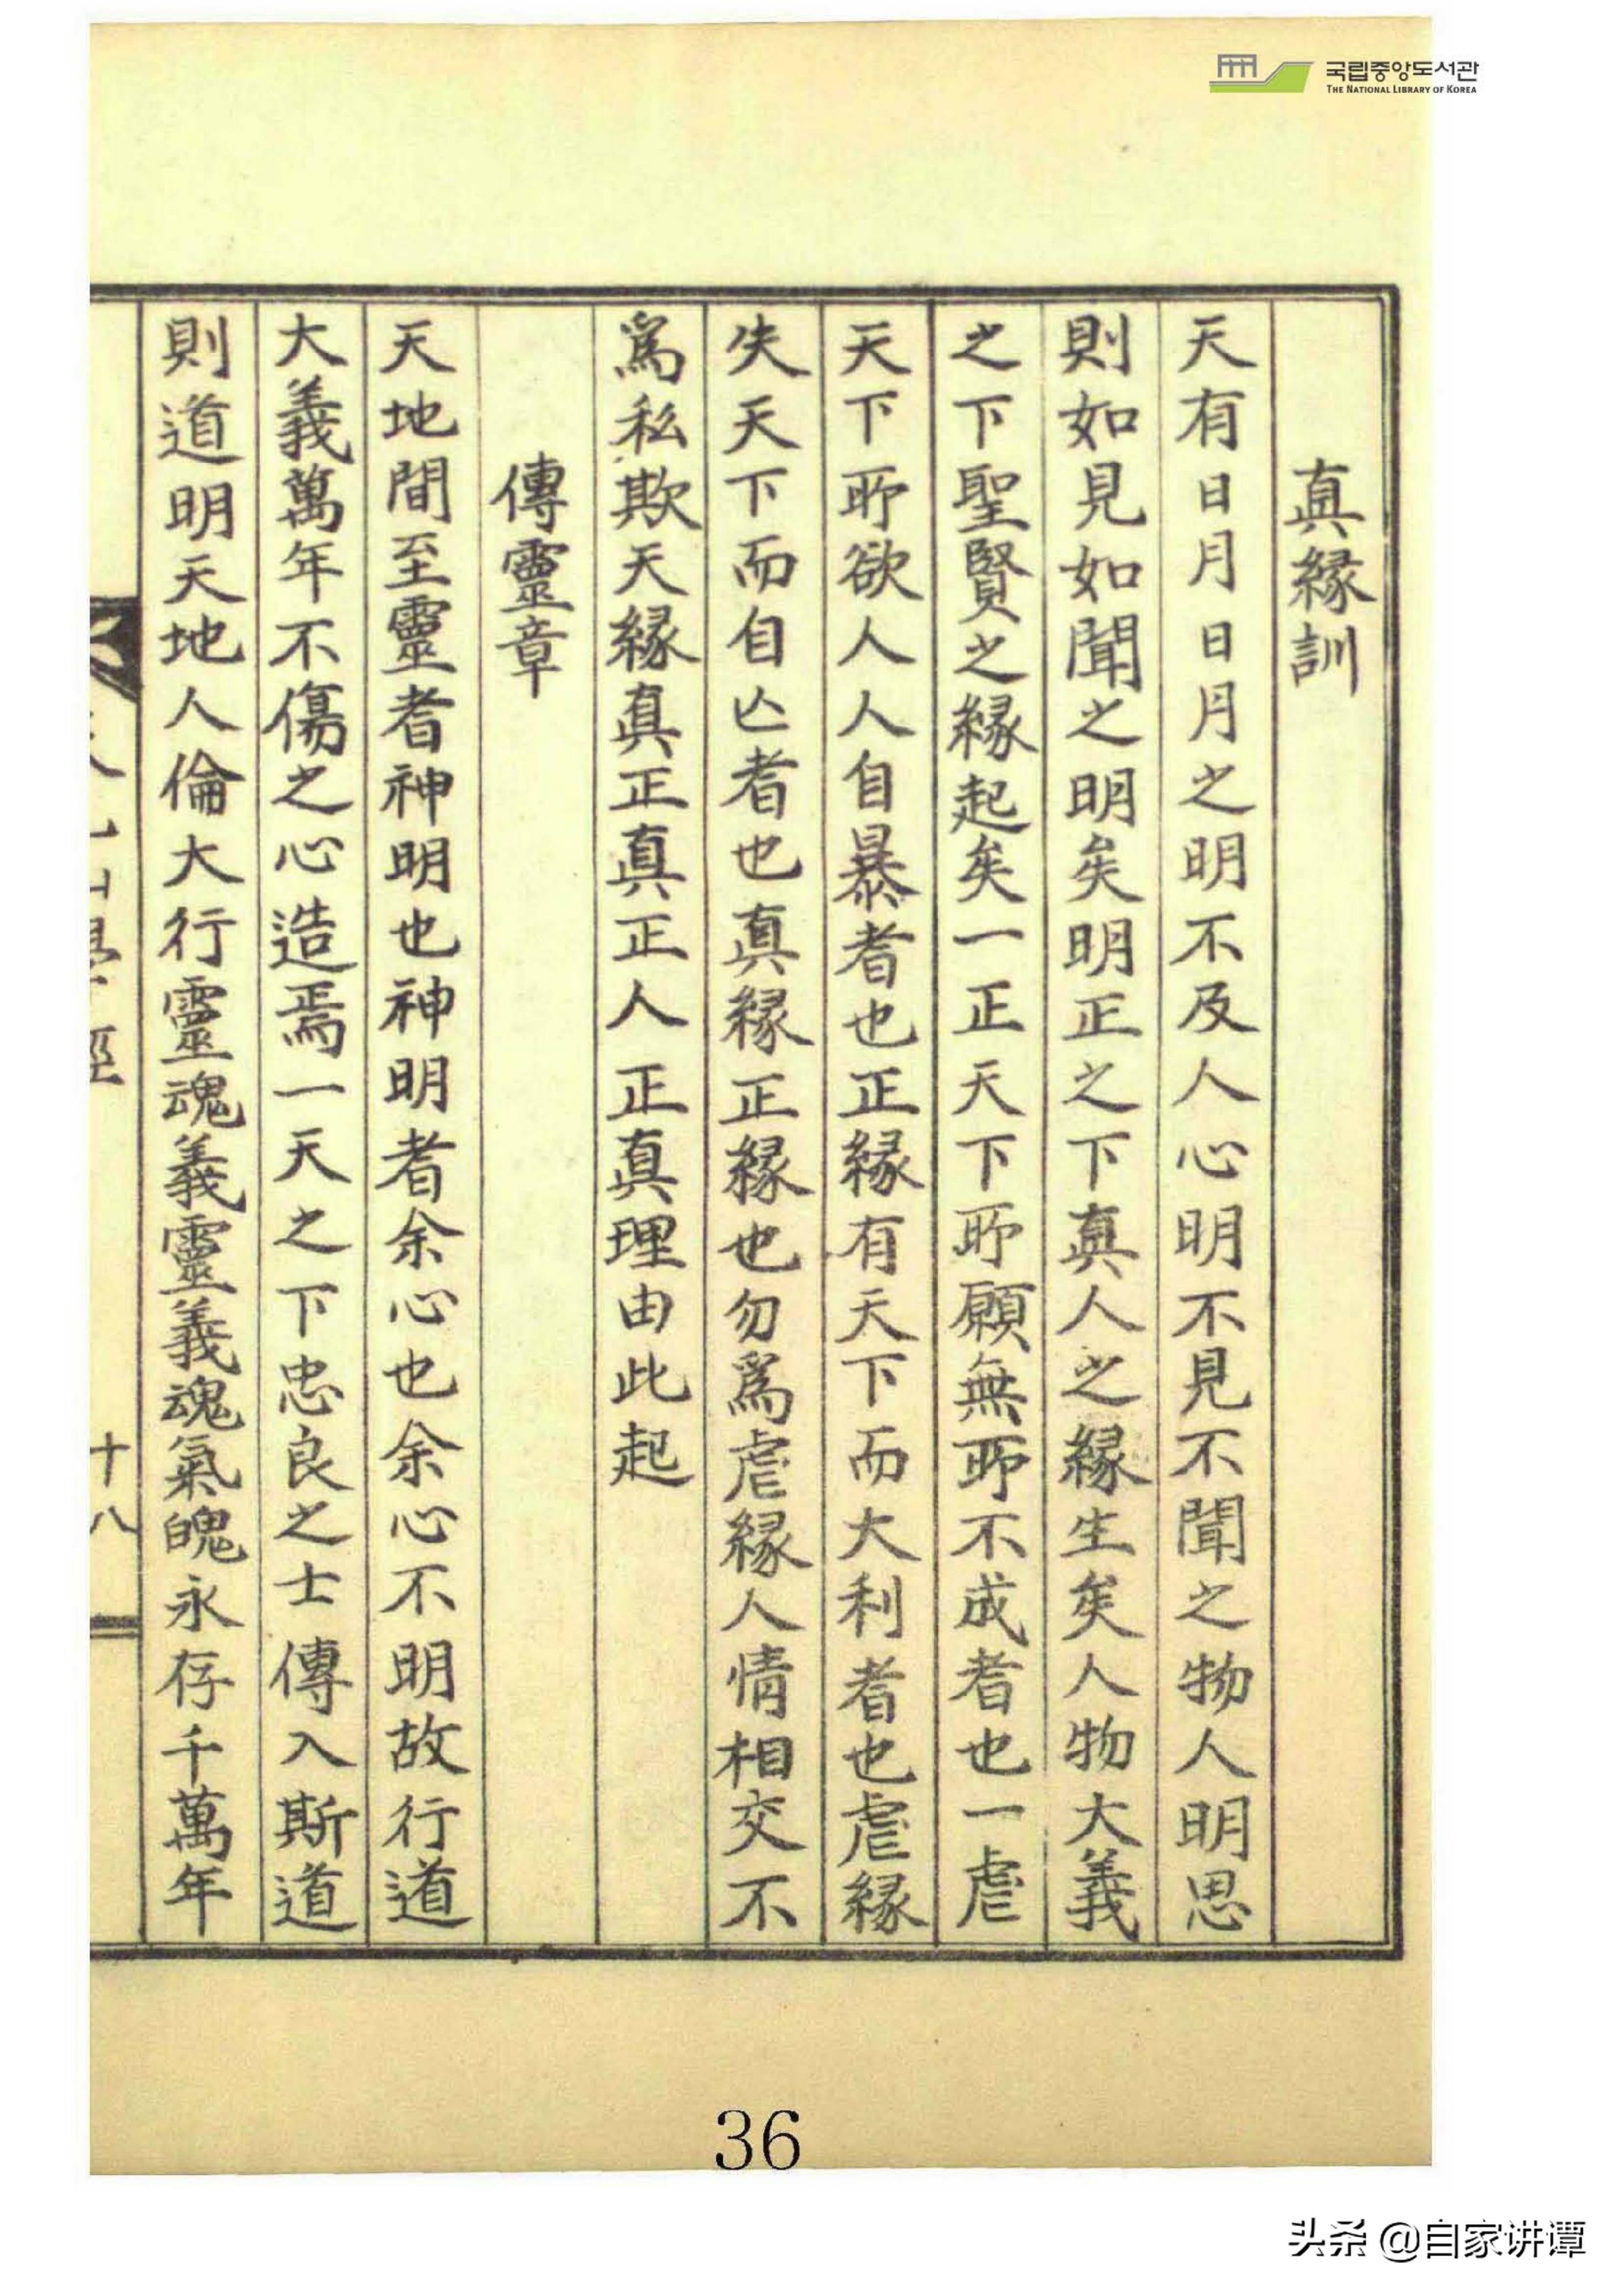 국립중앙도서관
THE NATIONAL LIBRARY OF KOREA
真縁訓
天有日月日月之明不及人心明不見不聞之物人明思
則如見如聞之明矣明正之下真人之縁生矣人物大義
之下聖賢之縁起矣一正天下所願無所不成者也一虐
天下所欲人人自暴者也正縁有天下而大利者也虐縁
失天下而自亾者也真縁正縁也勿爲虐縁人情相交不
爲私欺天縁真正真正人正真理由此起
傳靈章
天地間至靈者神明也神明者余心也余心不明故行道
大義萬年不傷之心造焉一天之下忠良之士傳入斯道
則道明天地人倫大行靈魂義靈義魂氣魄永存千萬年
十八
36
头条 @自家讲谭